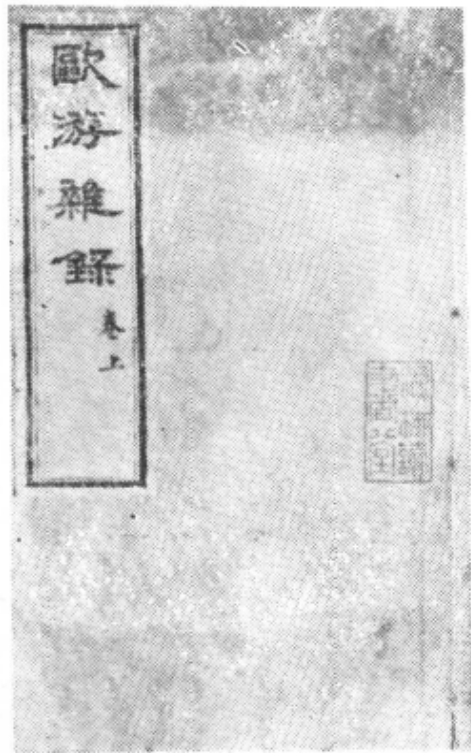 歐游雜錄
卷上